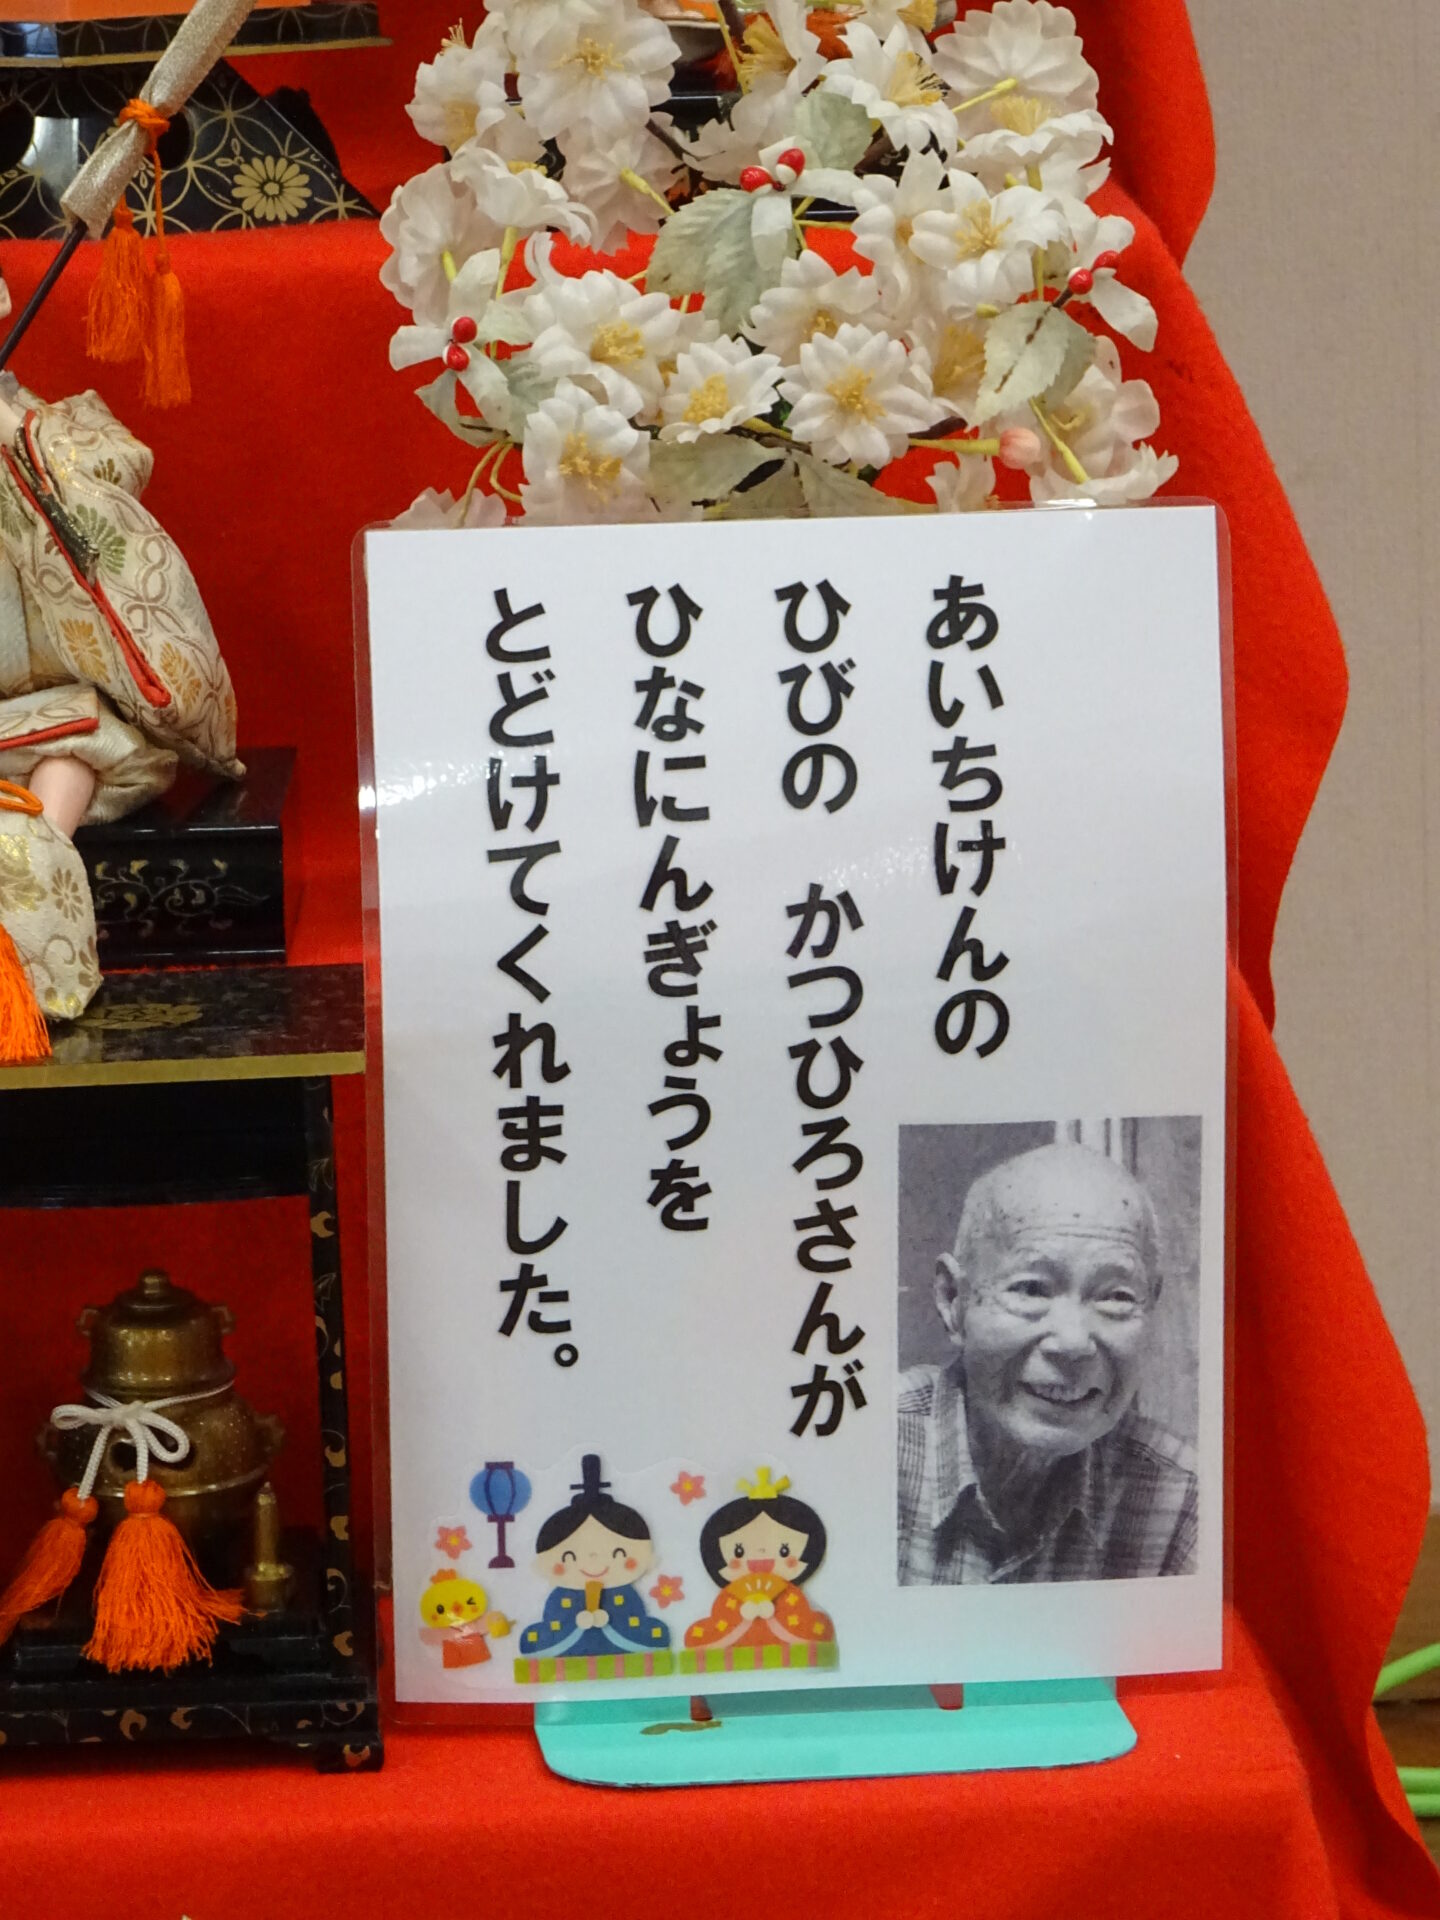 あいちけんの
ひびの　かつひろさんが
ひなにんぎょうを
とどけてくれました。